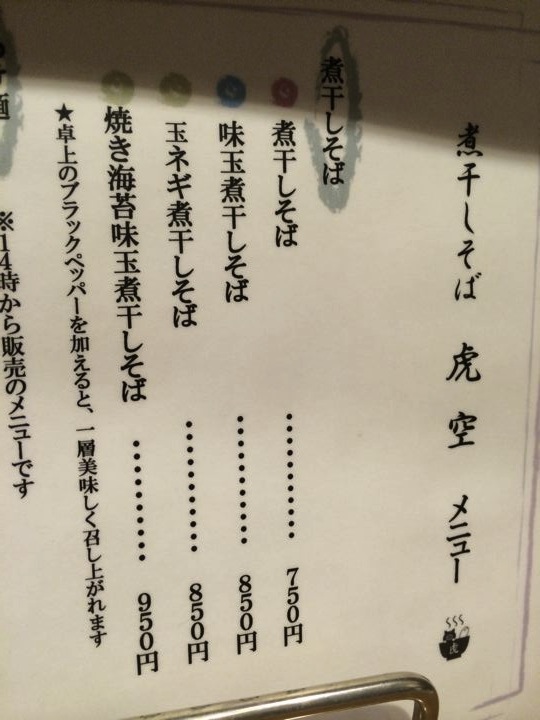 煮干しそば 虎空 メニュー
虎
煮干しそば
煮干しそば ・・・・・・・・・・ 750円
味玉煮干しそば ・・・・・・・・・・ 850円
玉ネギ煮干しそば ・・・・・・・・・・ 850円
焼き海苔味玉煮干しそば ・・・・・・・・・・ 950円
★卓上のブラックペッパーを加えると、一層美味しく召し上がれます
麺
※14時から販売のメニューです